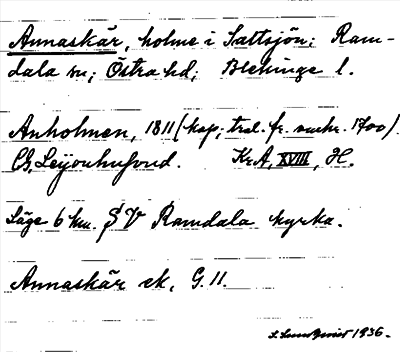 Annaskär, holme i Saltsjön; Ram-
dala sn; Östra hd; Blekinge l.
Anholmen, 1811 (kop; trol. fr. union. 1700).
Ch. Leijonhufvud. KrA, XVIII, H.
Läge 6 km. S V Ramdala kyrka.
Annaskär ek, G. 11.
1936.